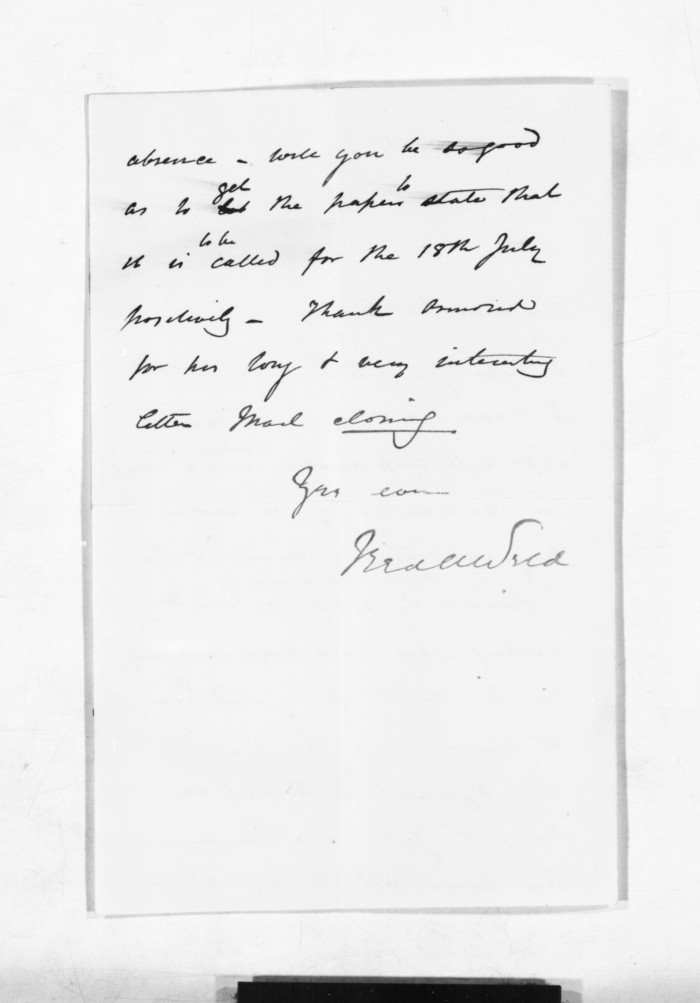 absence - will you be so good
as to get the papers to state that
it is to be called for the 18th July
positively - Thank Ormond
for his long & very interesting
letter Mail closing
Yrs ever
Fred A Weld